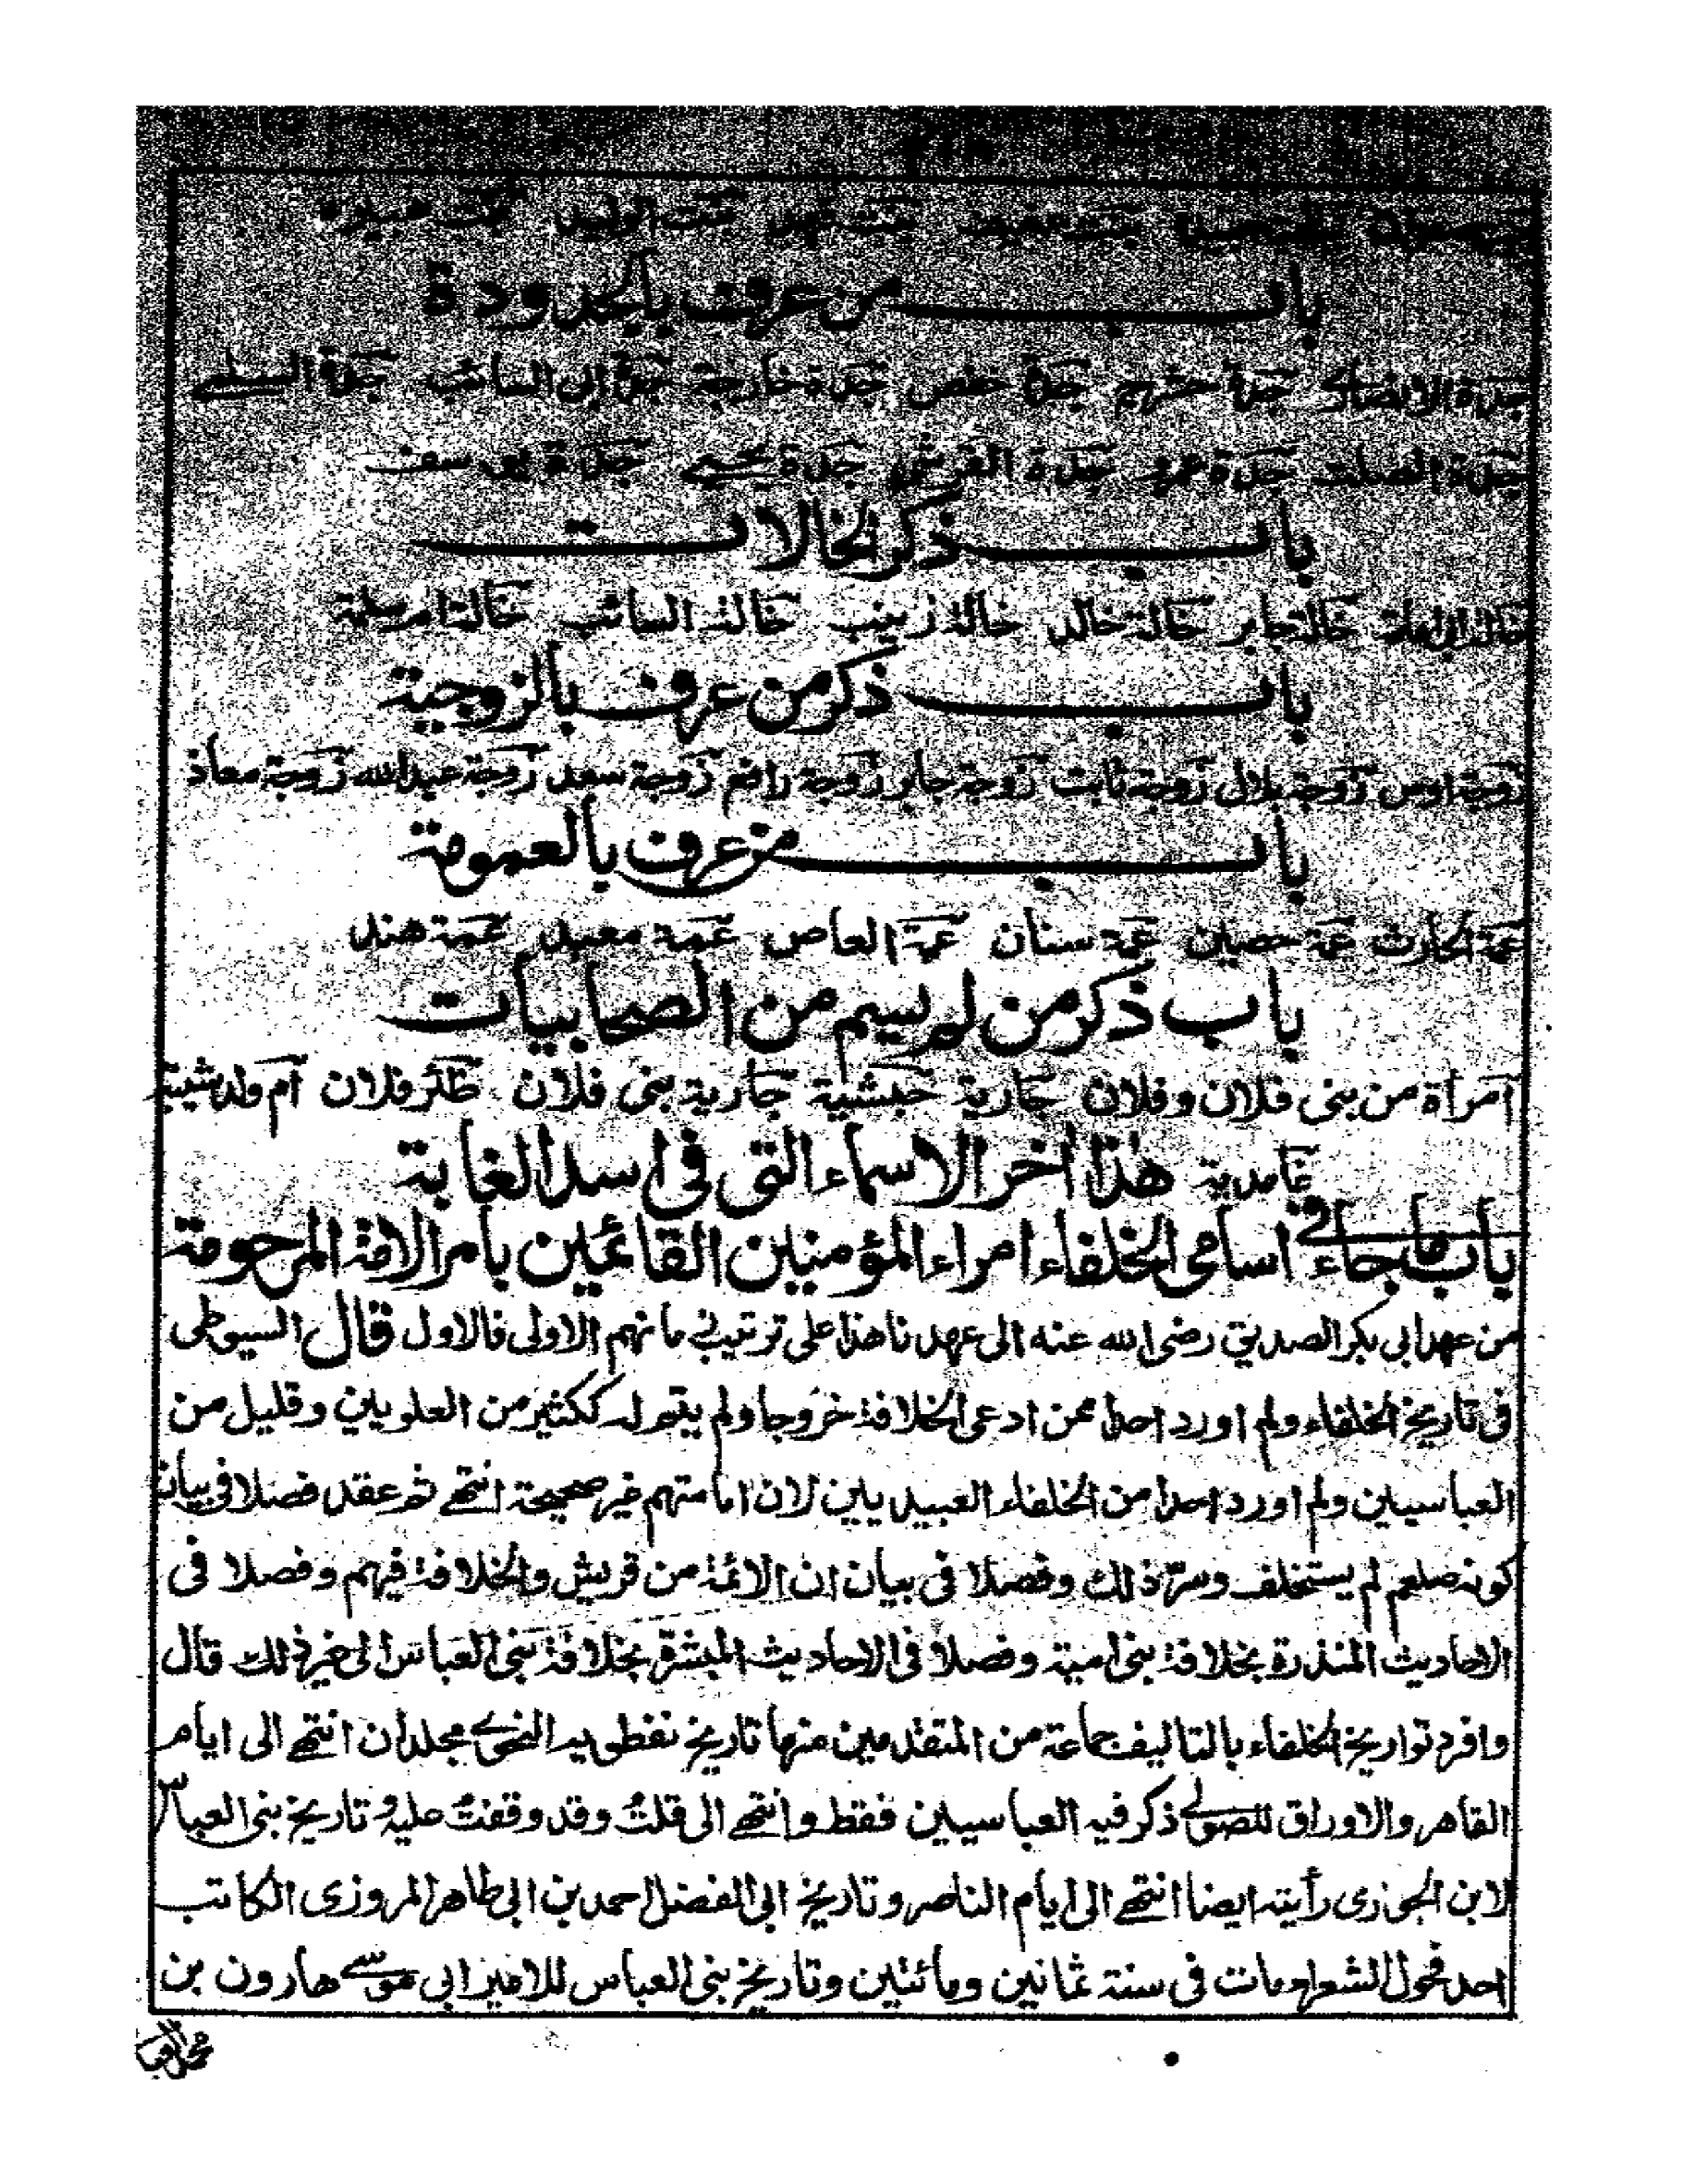 بنت عفيف بنت فهد بنت الوليد بنت هبيرة
باب من عرف بالجدودة
جدة الانصارى جدة خشرم جدة حفص جدة خارجة جدة ابن السائب جدة السلمى
جدة الصلت جدة عمرو جدة القرشى جدة يحيى جدة يوسف
باب ذكر الخالات
خالة جابر خالة خالد خالة زينب خالة السائب خالة ام سلمة
باب ذكر من عرف بالزوجية
زوجة اوس زوجة بلال زوجة ثابت زوجة جابر زوجة رافع زوجة سعد زوجة عبدالله زوجة معاذ
باب من عرف بالعمومة
عمة الحارث عمة حصين عمة سنان عمة العاص عمة معبد عمة هند
باب ذكر من لم يسم من الصحابيات
امرأة من بنى فلان وفلان جارية حبشية جارية بنى فلان ظئر فلان ام ولد شيبة
غامدية هذا آخر الاسماء التى فى اسد الغابة
باب ما جاء فى اسامى الخلفاء امراء المؤمنين القائمين بأمر الامة المرحومة
من عهد ابى بكر الصديق رضى الله عنه الى عهدنا هذا على ترتيب زمانهم الاولى فالاول قال السيوطى
فى تاريخ الخلفاء ولم اورد احدا ممن ادعى الخلافة خروجا ولم يتم له ككثير من العلويين وقليل من
العباسيين ولم اورد احدا من الخلفاء العبيديين لان امامتهم غير صحيحة انتهى ثم عقد فصلا فى بيان
كونه صلعم لم يستخلف وسر ذلك وفصلا فى بيان ان الائمة من قريش والخلافة فيهم وفصلا فى
الاحاديث المنذرة بخلافة بنى امية وفصلا فى الاحاديث المبشرة بخلافة بنى العباس الى غير ذلك قال
وافرد تواريخ الخلفاء بالتاليف جماعة من المتقدمين منها تاريخ نفطويه النحوى مجلدان انتهى الى ايام
القاهر والاوراق للصولى ذكر فيه العباسيين فقط وانتهى الى قلت وقد وقفت عليه و تاريخ بنى العباس
لابن الجوزى رأيته ايضا انتهى الى ايام الناصر وتاريخ ابى الفضل احمد بن ابى طاهر المروزى الكاتب
احد فحول الشعراء مات فى سنة ثمانين ومائتين وتاريخ بنى العباس للامير ابى موسى هارون بن
محمد العبا